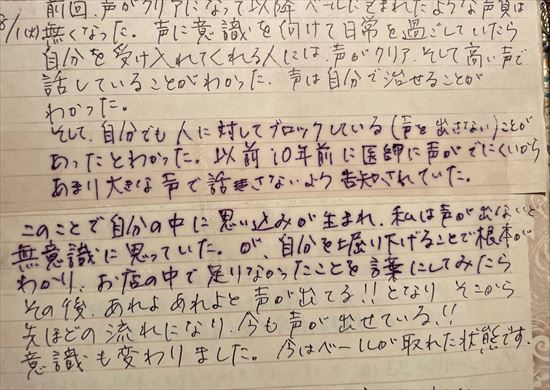 8/1(火) 前回、声がクリアになって以降 ベールに包まれたような声質は
無くなった。声に意識を向けて日常を過ごしていたら
自分を受け入れてくれる人には、声がクリア、そして高い声で
話していることがわかった、声は自分で治せることが
わかった。
そして、自分でも人に対してブロックしている(声を出さない)ことが
あったとわかった。以前10年前に医師に声がでにくいから
あまり大きな声で話さないよう告知されていた。
このことで自分の中に思い込みが生まれ、私は声が出ないと
無意識に思っていた。が、自分を掘り下げることで根本が
わかり、お店の中で足りなかったことを言葉にしてみたら
その後、あれよあれよと声が出てる!!となり そこから
先ほどの流れになり、今も声が出せている!!
意識も変わりました。今はベールが取れた状態です。